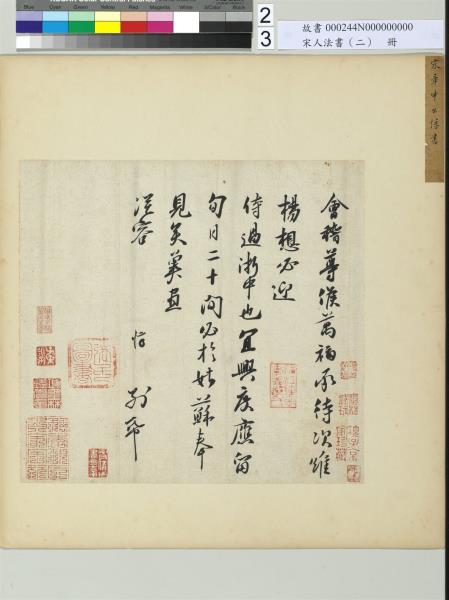 Blue Cyan Green Yellow Red Magenta White 3/Color Black
2
3
故書 000244N000000000
宋人法書（二） 冊
宋章申公惇書
會稽尊候萬福承待次維
楊想必迎
侍過浙中也宜興度應留
旬日二十間必於姑蘇奉
見矣冀盡
從容 惇 別帋